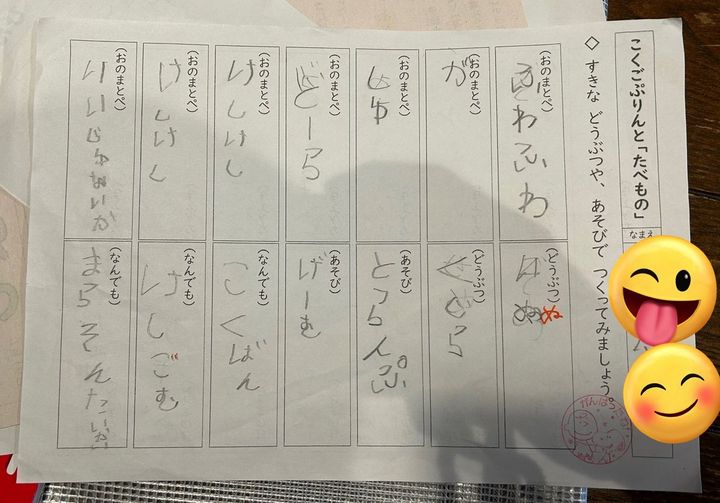 こくごぷりんと「たべもの」
なまえ
◇ すきな どうぶつや、あそびで つくってみましょう。
(おのまとぺ)
ふわふわ
(どうぶつ)
ぬ
(おのまとぺ)
が
(どうぶつ)
(おのまとぺ)
しゅ
(あそび)
とらんぷ
(おのまとぺ)
(あそび)
げーむ
(おのまとぺ)
けしけし
(なんでも)
こくばん
(おのまとぺ)
けしけし
(なんでも)
けしごむ
(おのまとぺ)
いいじゃないか
(なんでも)
まらそんたいかい